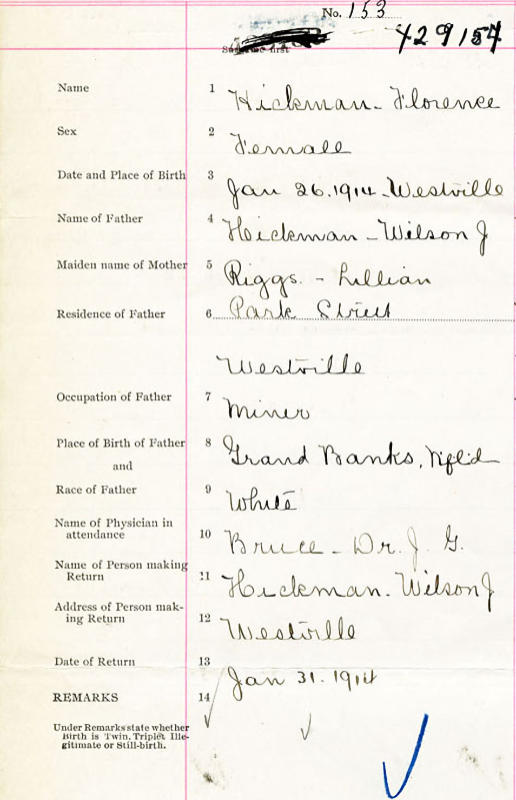 No. 153
429157
Surname first
Name 1 Hickman - Florence
Sex 2 Female
Date and Place of Birth 3 Jan 26. 1914. Westville
Name of Father 4 Hickman - Wilson J
Maiden name of Mother 5 Riggs. - Lillian
Residence of Father 6 Park Street
Westville
Occupation of Father 7 Miner
Place of Birth of Father 8 Grand Banks, Nfl'd
and
Race of Father 9 White
Name of Physician in
attendance 10 Bruce - Dr. J. G.
Name of Person making
Return 11 Hickman. Wilson J
Address of Person mak-
ing Return 12 Westville
Date of Return 13 Jan 31. 1914
REMARKS 14
Under Remarks state whether
Birth is Twin, Triplet, Ille-
gitimate or Still-birth.